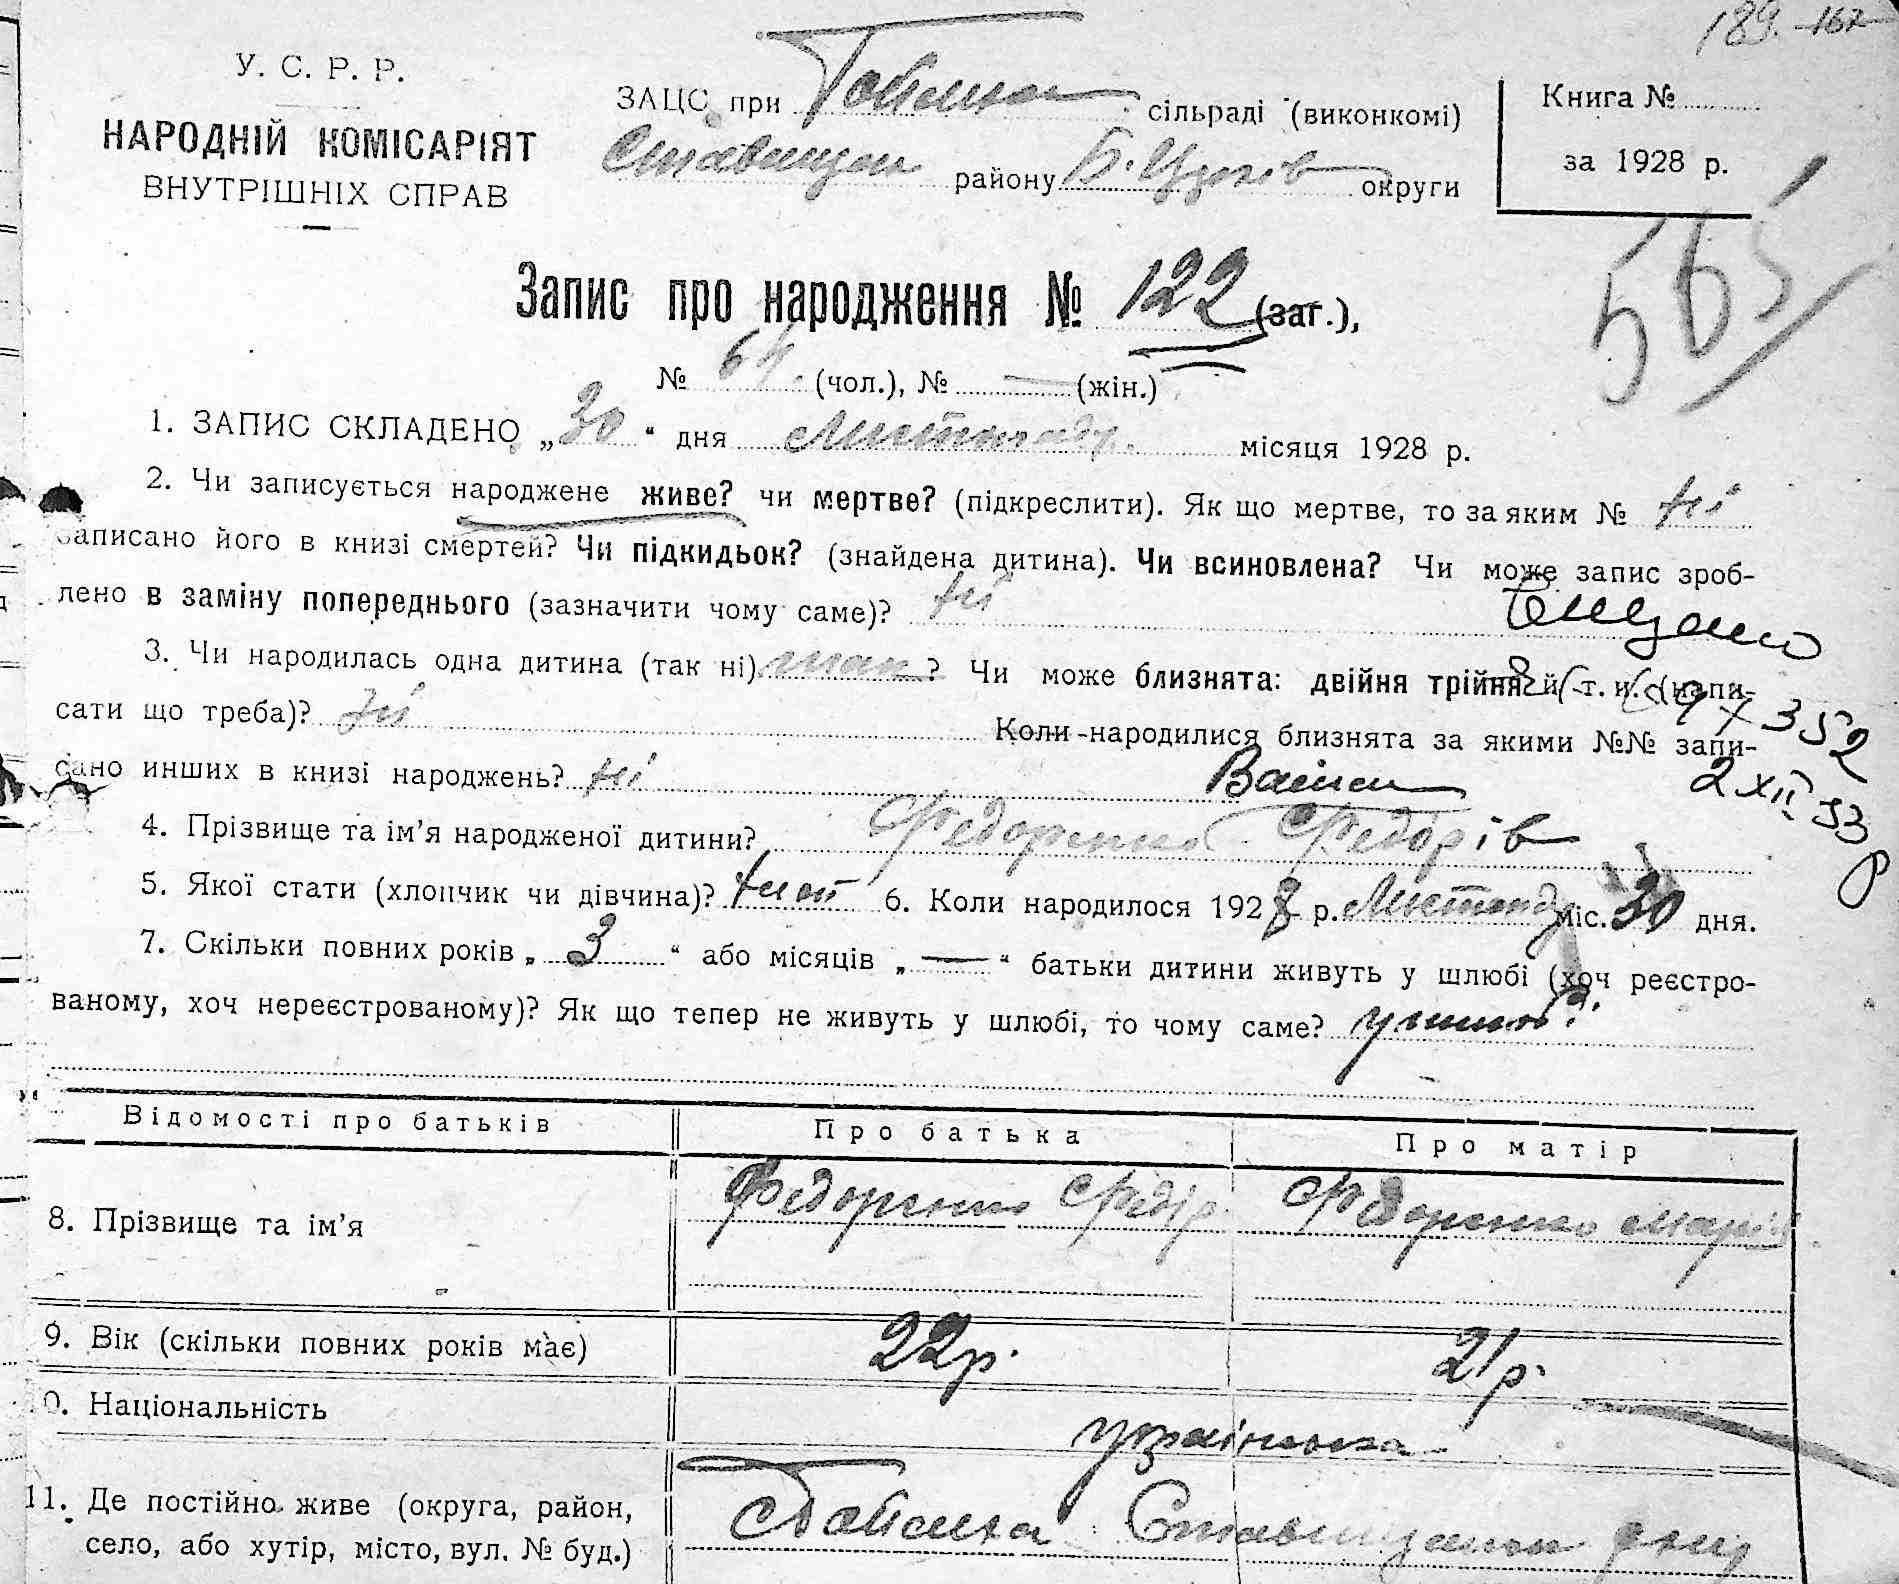 189. 167
У. С. Р. Р.
НАРОДНІЙ КОМІСАРІЯТ
ВНУТРІШНІХ СПРАВ
ЗАЦС при сільраді (виконкомі)
Ставищан району Б. Церків округи
Книга №
за 1928 р.
565
Запис про народження № 122 (заг.),
№ 64. (чол.), № — (жін.)
1. ЗАПИС СКЛАДЕНО „30“ дня Листопаду місяця 1928 р.
2. Чи записується народжене живе? чи мертве? (підкреслити). Як що мертве, то за яким № ні
записано його в книзі смертей? Чи підкидьок? (знайдена дитина). Чи всиновлена? Чи може запис зроб-
лено в заміну попереднього (зазначити чому саме)? ні
3. Чи народилась одна дитина (так ні) так? Чи може близнята: двійня трійня й т. и. (напи-
сати що треба)? ні Коли народилися близнята за якими №№ запи-
сано инших в книзі народжень? ні
97352
2 XII 53
4. Прізвище та ім’я народженої дитини? Федоренко Федорів
5. Якої стати (хлопчик чи дівчина)? 6. Коли народилося 1928 р. Листопад міс. 30 дня.
7. Скільки повних років „3“ або місяців „—“ батьки дитини живуть у шлюбі (хоч реєстро-
ваному, хоч нереєстрованому)? Як що тепер не живуть у шлюбі, то чому саме?
Відомості про батьків Про батька Про матір
8. Прізвище та ім’я Федоренко Федір Федоренко Марія
9. Вік (скільки повних років має) 22р. 21р.
0. Національність українська
11. Де постійно живе (округа, район,
село, або хутір, місто, вул. № буд.)